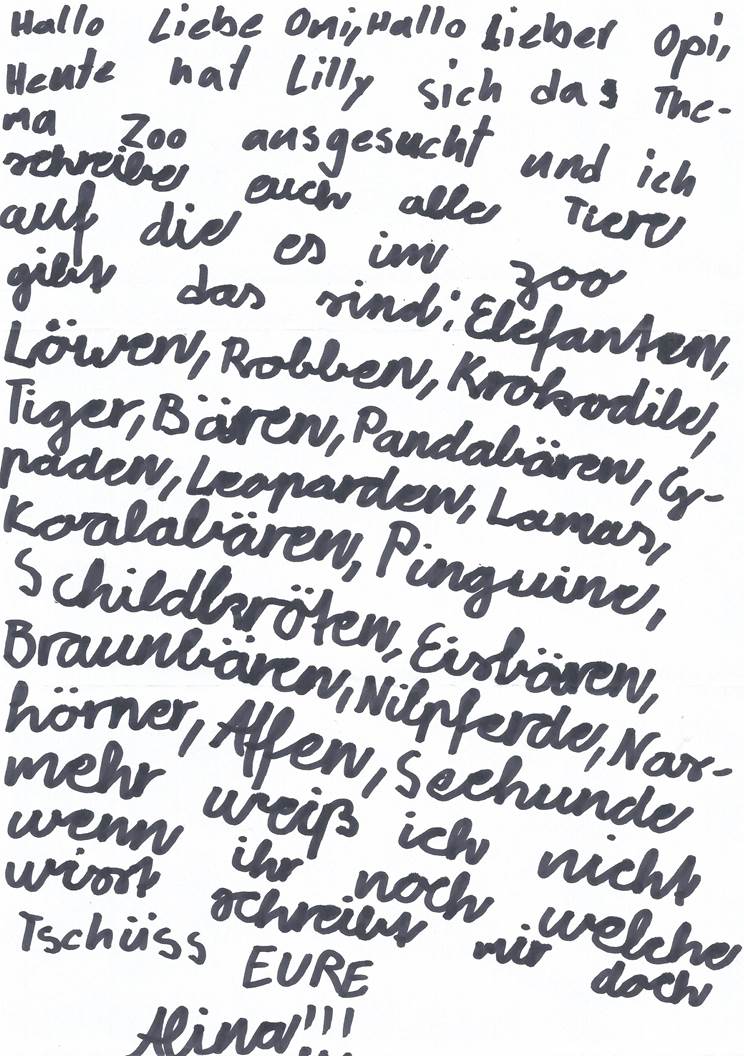 Hallo Liebe Omi, Hallo Lieber Opi,
Heute hat Lilly sich das The-
ma Zoo ausgesucht und ich
schreibe euch alle Tiere
auf die es im Zoo
gibt das sind: Elefanten,
Löwen, Robben, Krokodile,
Tiger, Bären, Pandabären, G-
paden, Leoparden, Lamas,
Koalabären, Pinguine,
Schildkröten, Eisbären,
Braunbären, Nilpferde, Nas-
hörner, Affen, Seehunde
mehr weiß ich nicht
wenn ihr noch welche
wisst schreibt mir doch
Tschüss EURE
Alina!!!